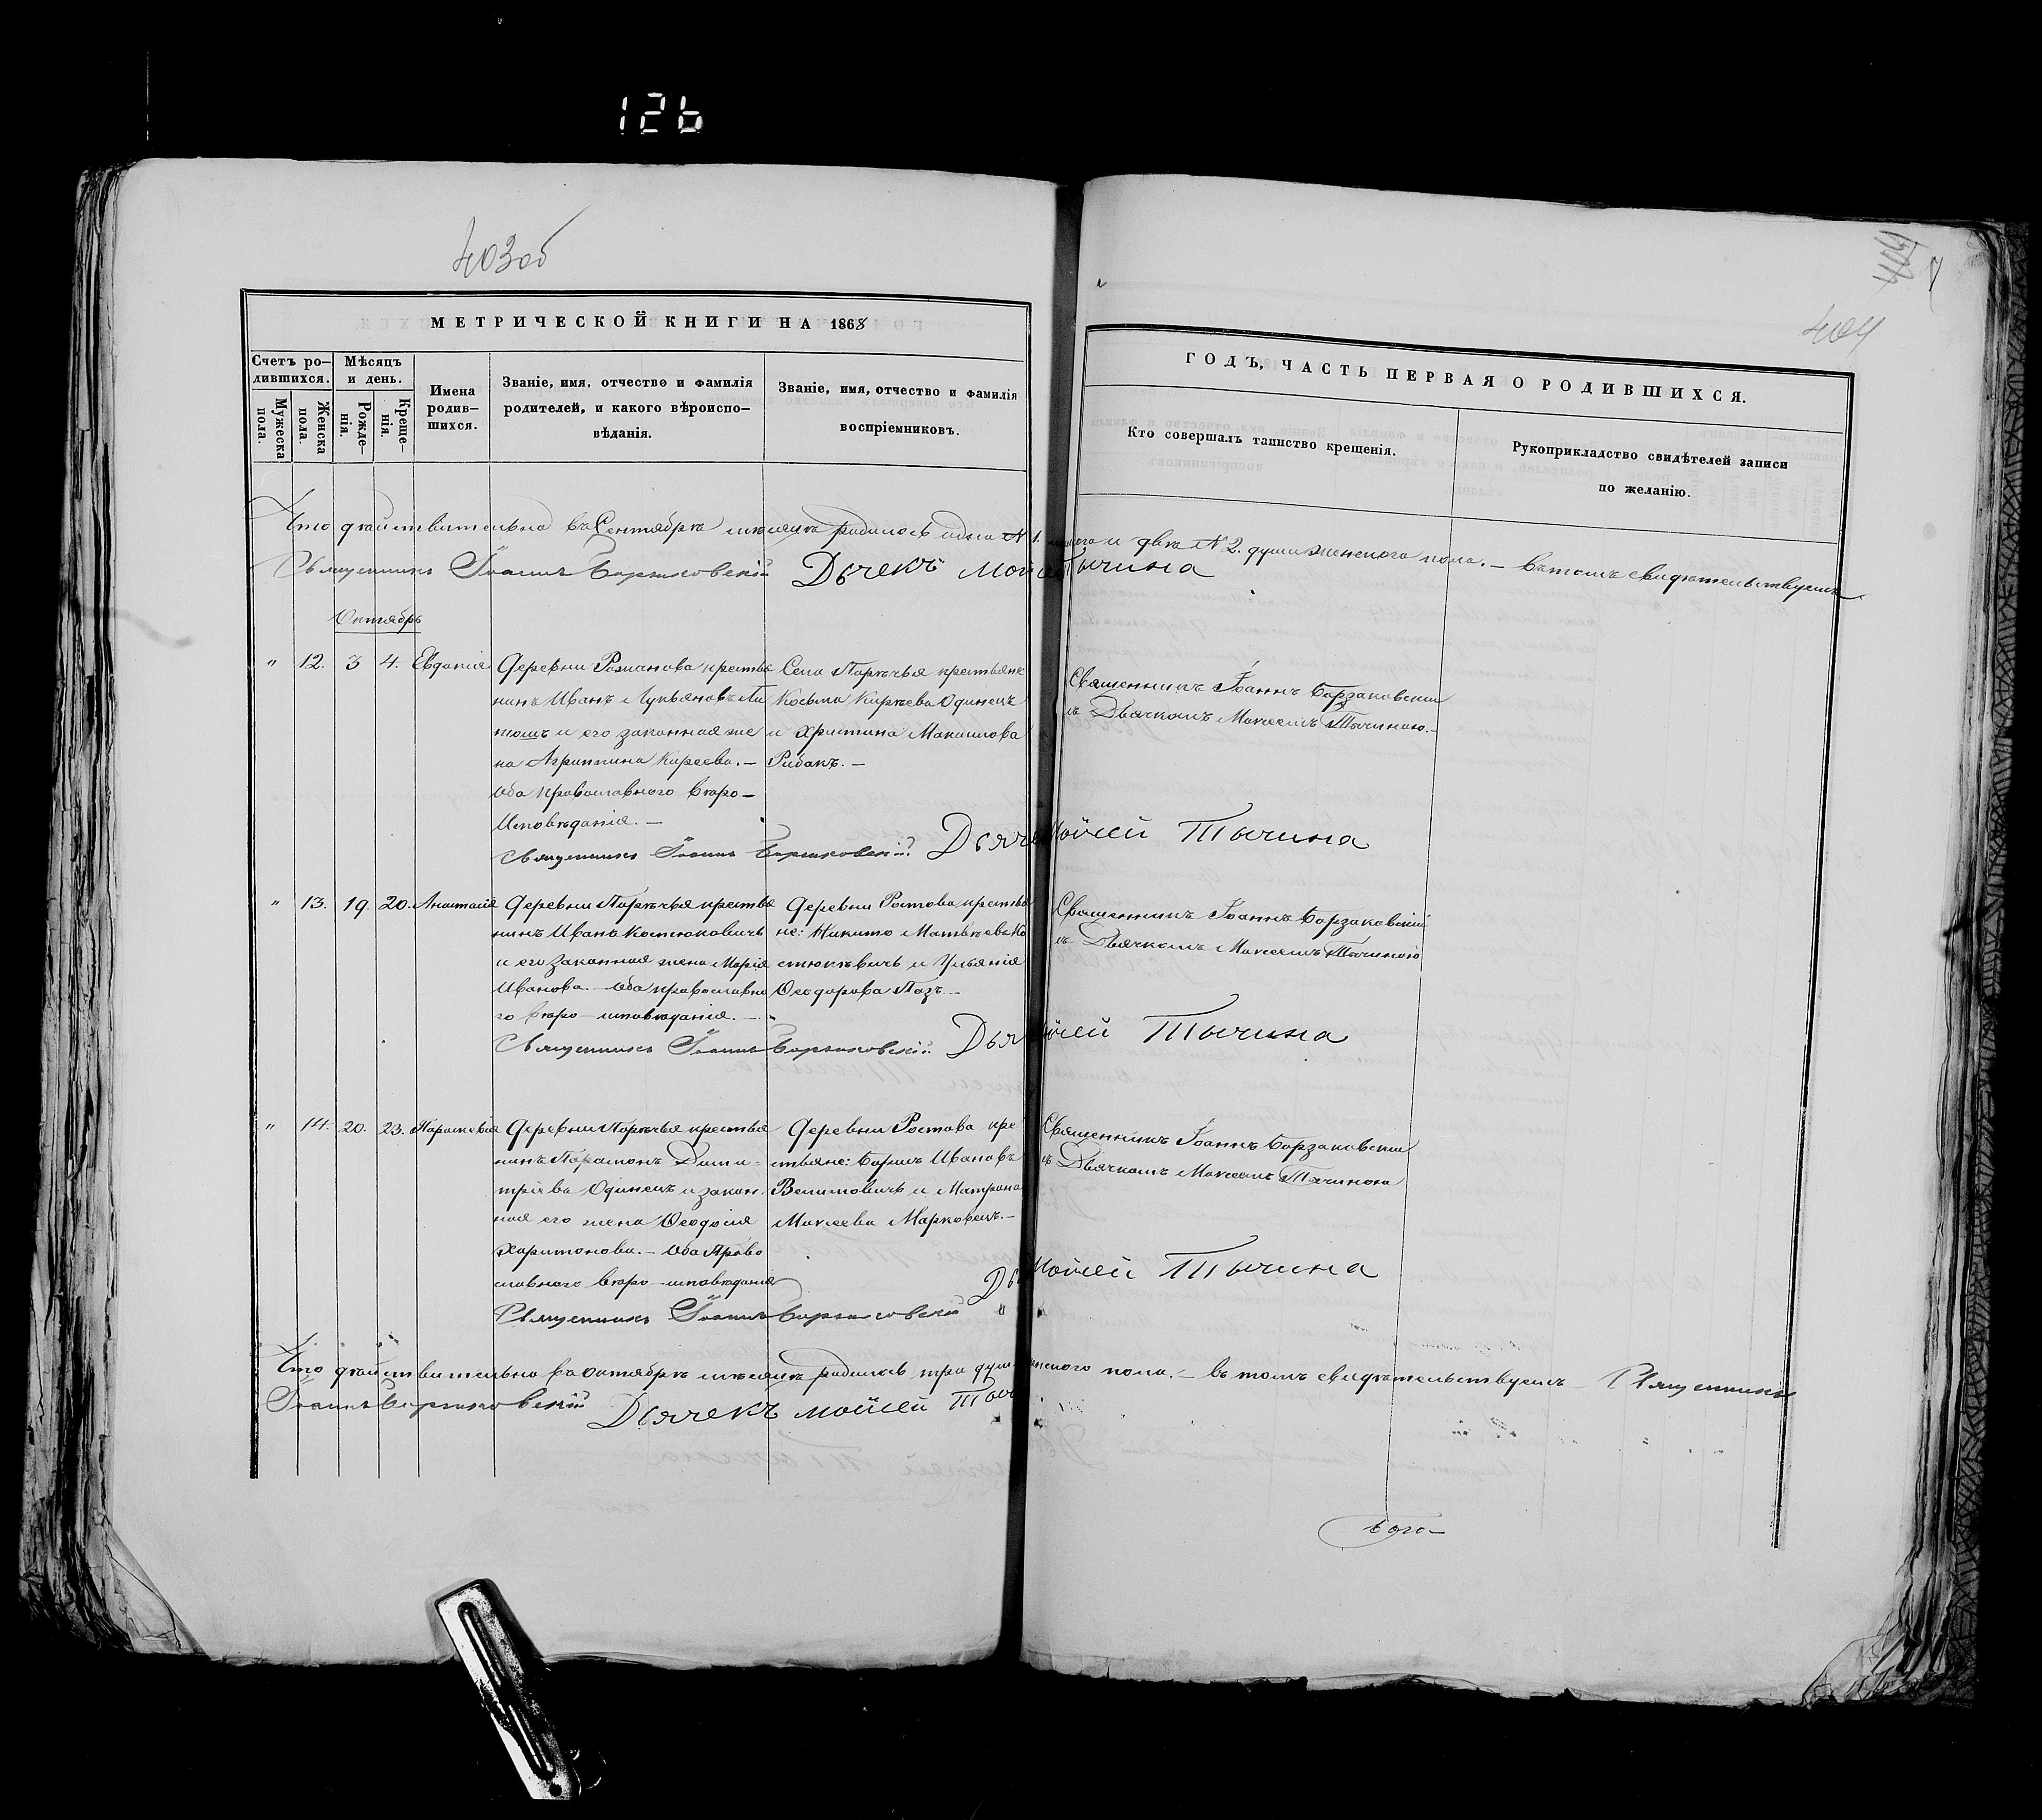 126
403об
404
404
МЕТРИЧЕСКОЙ КНИГИ НА 1868
Счетъ ро-
дившихся.
Мужеска
пола.
Женска
пола.
Мѣсяцъ
и день.
Рожде-
нія.
Креще-
нія.
Имена
родив-
шихся.
Званіе, имя, отчество и фамилія
родителей, и какого вѣроиспо-
вѣданія.
Званіе, имя, отчество и фамилія
воспріемниковъ.
ГОДЪ, ЧАСТЬ ПЕРВАЯ О РОДИВШИХСЯ.
Кто совершалъ таинство крещенія.
Рукоприкладство свидѣтелей записи
по желанію.
Что дѣйствительно въ Сентябрѣ мѣсяцѣ родилось одна № 1. и двѣ № 2. души женского пола. – въ томъ свидѣтельствуемъ
Священникъ Іоаннъ Борзаковскій Дьячекъ Моисей Тычина
Октябрь
" 12. 3 4. Евдокія
Деревни Рожанова крестья
нинъ Иванъ Лукьяновъ
и его законная же
на Агриппина Киреева. –
Оба православного вѣро–
исповѣданія. –
Села Порѣчья крестьяне
Косьма Кирѣевъ Одинецъ
и Христина Максимова
Рибакъ. –
Священникъ Іоаннъ Борзаковскій
съ Дьячкомъ Моисеемъ Тычиною. –
Священникъ Іоаннъ Борзаковскій Дьяче Моисей Тычина
" 13. 19. 20. Анастасія
Деревни Порѣчья крестья
нинъ Иванъ Костюковичъ
и его законная жена Марія
Иванова. – Оба православно
го вѣро–исповѣданія. –
Деревни Ростова крестья
не: Никита Матвѣевъ Ко
стюкѣвичъ и Ульянія
Ѳеодорова Позъ. –
Священникъ Іоаннъ Борзаковскій
съ Дьячкомъ Моисеемъ Тычиною
Священникъ Іоаннъ Борзаковскій Дьяч Моисей Тычина
" 14. 20. 23. Параскевія
Деревни Порѣчья крестья
нинъ Парамонъ Дими-
тріевъ Одинецъ и закон-
ная его жена Ѳеодосія
Харитонова. – Оба Право
славного вѣро–исповѣданія
Деревни Ростова кре
стьяне: Борисъ Ивановъ
Велитовичъ и Матрона
Моисеева Марковецъ. –
Священникъ Іоаннъ Борзаковскій
съ Дьячкомъ Моисеемъ Тычиною
Дь Моисей Тычина
Священникъ Іоаннъ Борзаковскій
Что дѣйствительно въ Октябрѣ мѣсяцѣ родилось три души женского пола. – въ томъ свидѣтельствуемъ Священникъ
Іоаннъ Борзаковскій Дьячекъ Моисей Тыч